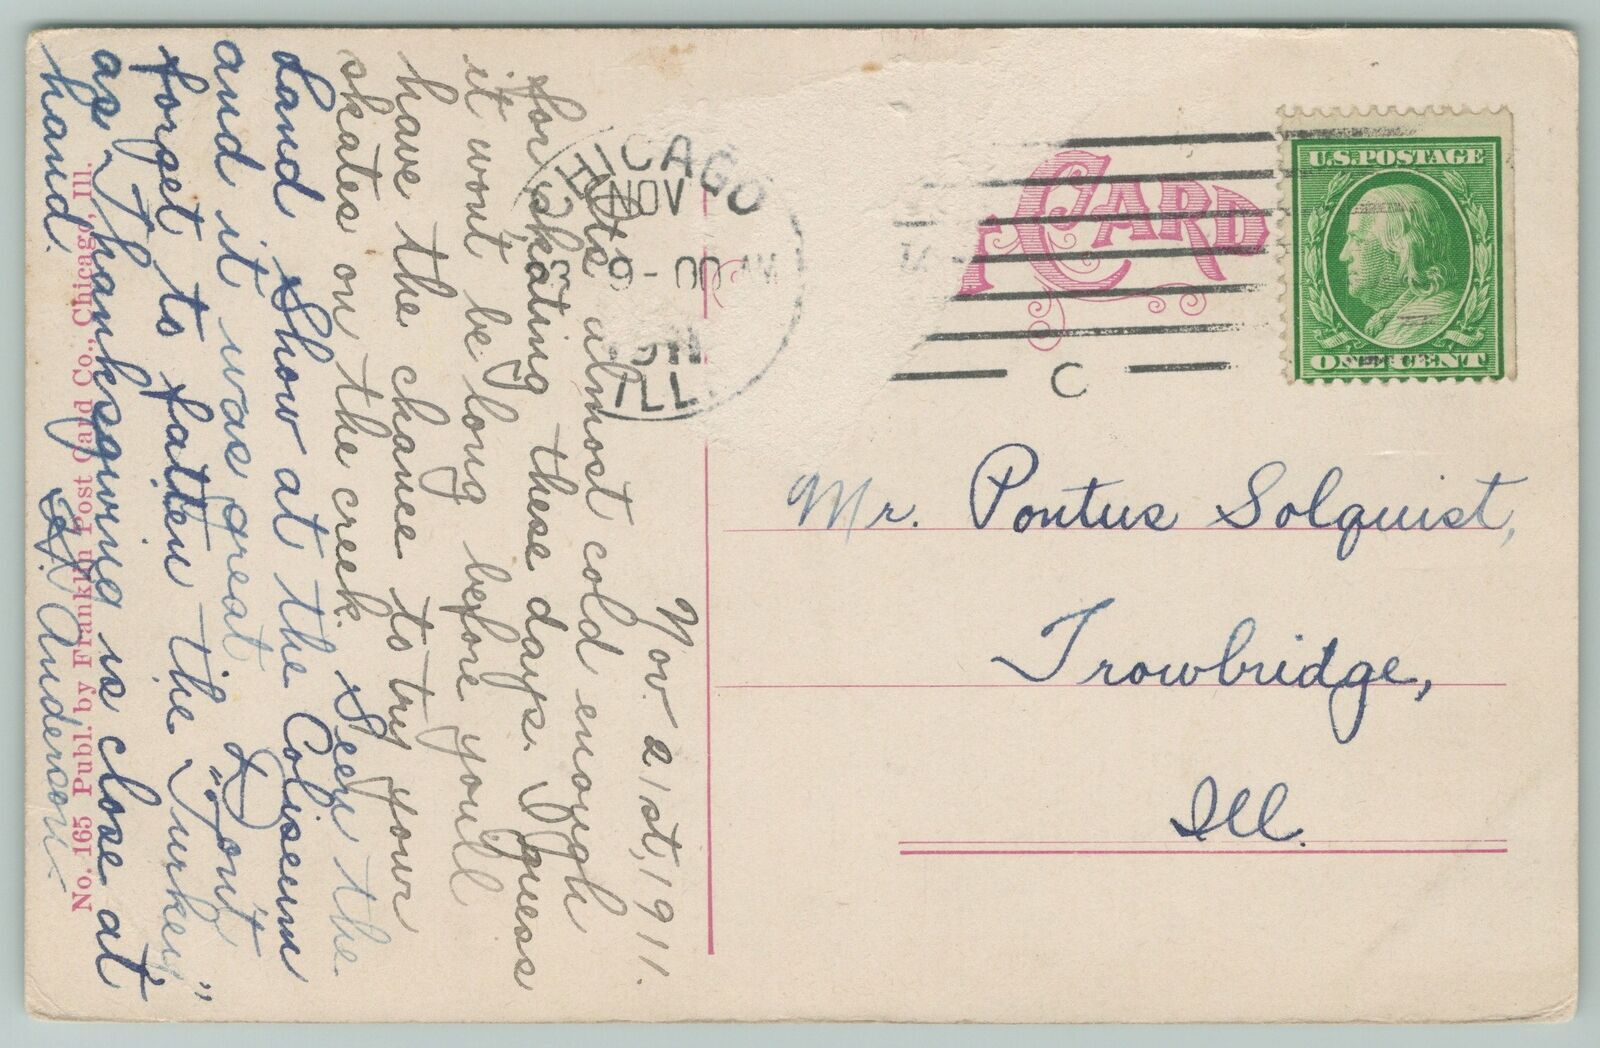 Nov. 21st, 1911.
Its almost cold enough
for skating these days. I guess
it wont be long before you'll
have the chance to try your
skates on the creek. Seen the
Land Show at the Coliseum
and it was great. Don't
forget to fatten the "Turkey"
as Thanksgiving is close at
hand.
Anderson
No. 165 Publ. by Franklin Post Card Co., Chicago, Ill.
CHICAGO
NOV
9-00 AM
1911
ILL.
C
CARD
U.S. POSTAGE
ONE CENT
Mr. Pontus Solquist,
Trowbridge,
Ill.